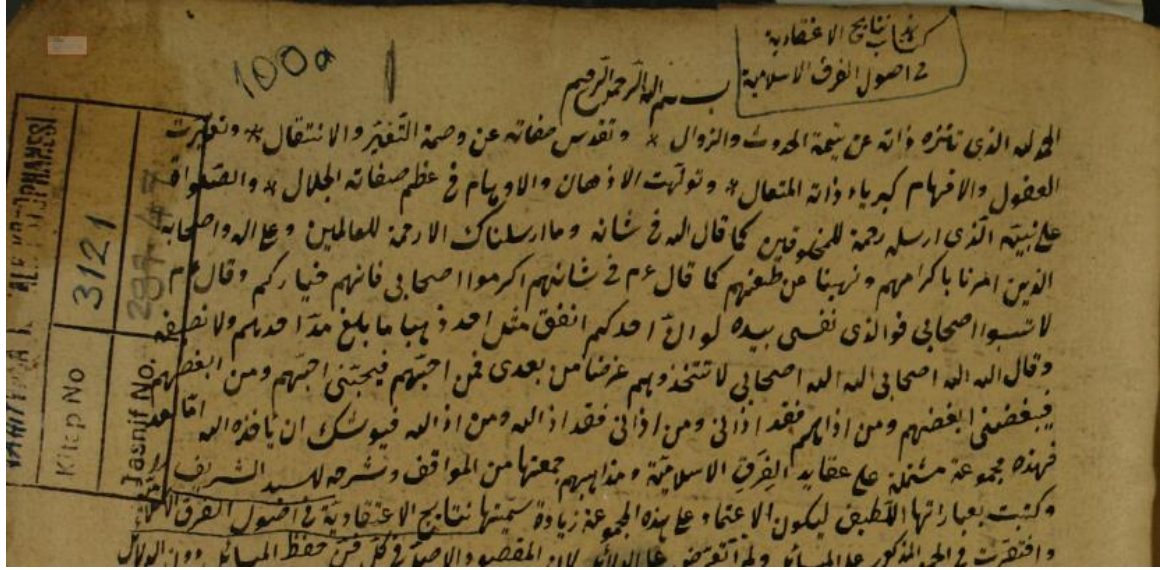 كتاب نتايج الاعتقادية
في اصول الفرق الاسلامية
100a
بسم الله الرحمن الرحيم
الحمد لله الذى تنزه ذاته عن سمة الحدوث والزوال * وتقدس صفاته عن وصمة التغير والانتقال * وتحيرت
العقول والافهام كبرياء ذاته المتعال * وتولّهت الاذهان والاوهام فى عظم صفاته الجلال * والصّلواة
على نبيّه الّذى ارسله رحمة للمخلوقين كما قال الله فى شانه وما ارسلناك الا رحمة للعالمين وعلى اله واصحابه
الذين امرنا باكرامهم ونهينا عن طعنهم كما قال عم فى شانهم اكرموا اصحابى فانهم خياركم وقال عم
لا تسبوا اصحابى فوالذى نفسى بيده لو انّ احدكم انفق مثل احد ذهبا ما بلغ مدّ احدهم ولا نصيفه
وقال الله الله اصحابى الله الله اصحابى لا تتخذوهم غرضا من بعدى فمن احبّهم فبحبّى احبّهم ومن ابغضهم
فببغضى ابغضهم ومن اذاهم فقد اذانى ومن اذانى فقد اذ الله ومن اذ الله فيوشك ان ياخذه الله امّا بعد
فهذه مجموعة مشتملة على عقايد الفِرَق الاسلاميّة ومذاهبهم جمعتها من المواقف وشرحه للسيد الشريف
وكتبت بعباراتها اللّطيف ليكون الاعتماد على هذه المجموعة زيادة سميتها نتايج الاعتقادية فى اصول الفرق
واقتصرت فى المذكور على المسائل ولم اتعرّض على الدلائل لان المقصد والاصل فى كل فنّ حفظ المسائل دون الدلائل
Kitap No
3121
Tasnif No.
297.47